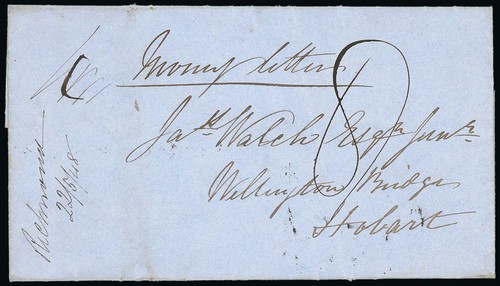 Money letter
8
Jas. Walch Esqr Junr
Wellington Bridge
Hobart
Richmond
22/5/48